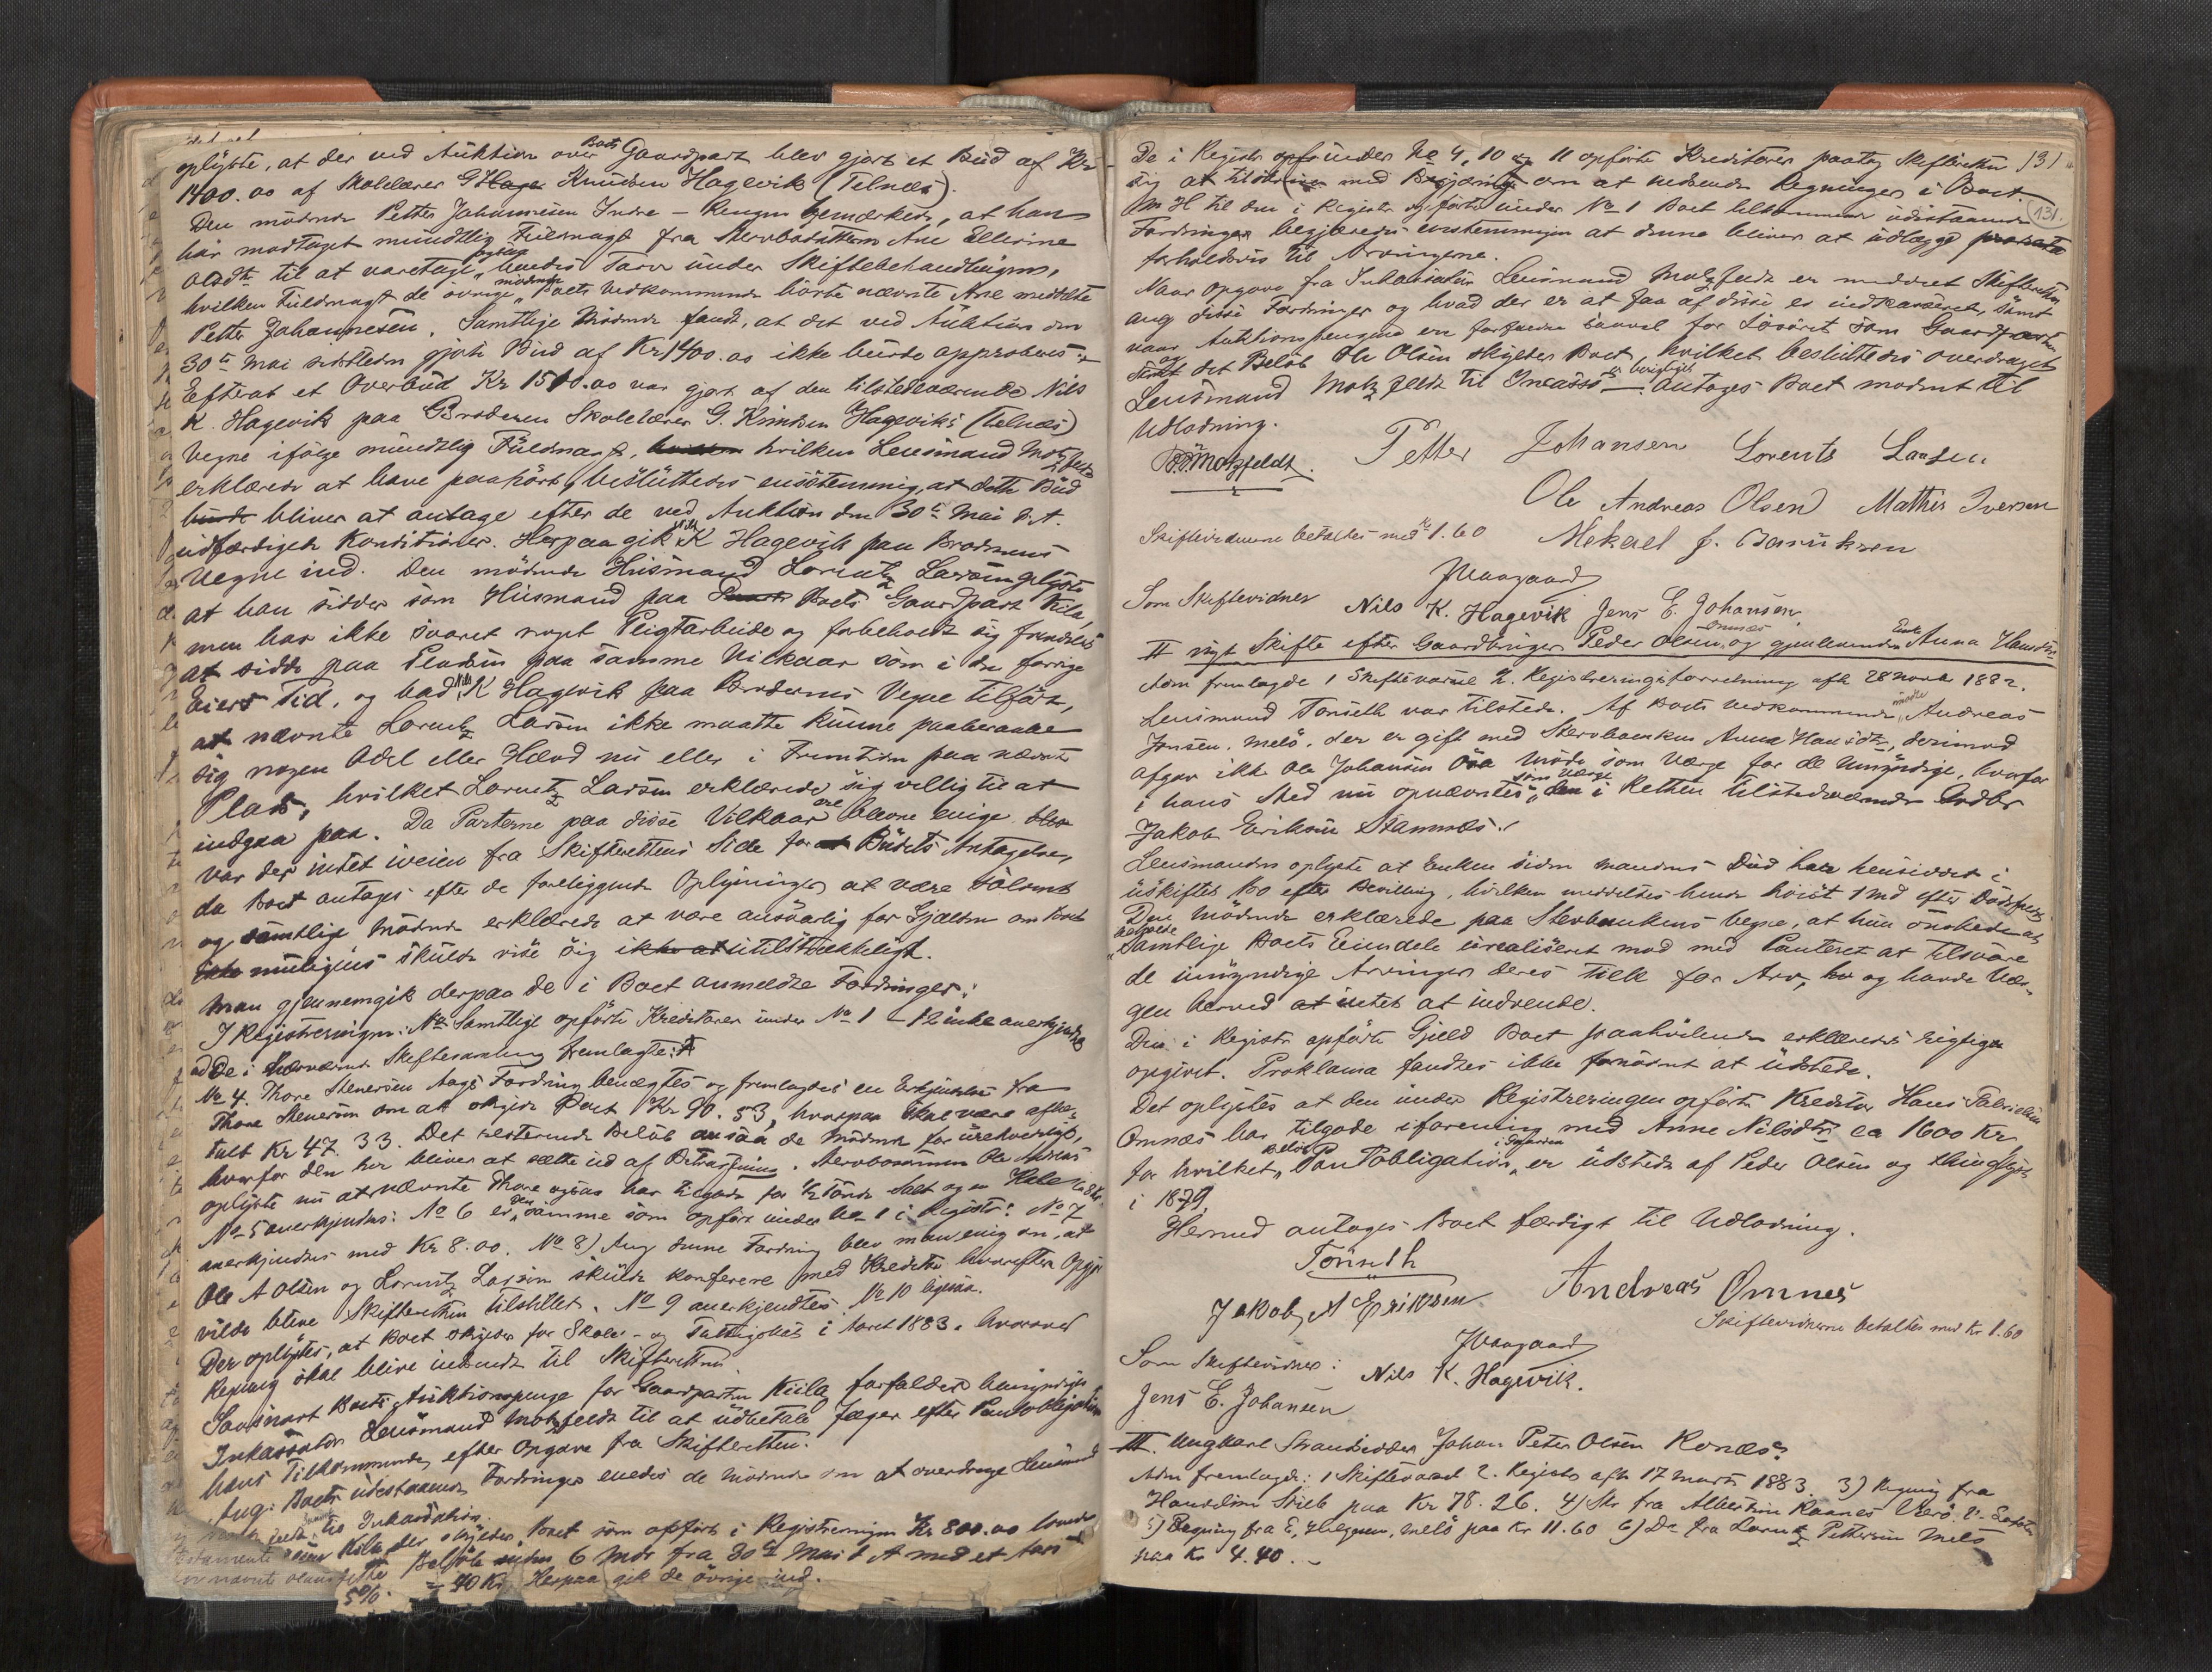 oplyste, at der ved Auktion over Boets Gaardpart blev gjort et Bud af Kr
1400.00 af Skolelærer G Hage Knudsen Hagevik (Telnes).
Den mødende Petter Johannesen Indre-Rengen bemærkede, at han
har modtaget mundtlig Fuldmagt fra Stervbodatteren Ane Ellerine
Olsdtr til at varetage hendes Tarv under Skiftebehandlingen,
hvilken Fuldmagt de øvrige mødende Boets Vedkommende hørte nævnte Ane meddelte
Petter Johannesen. Samtlige Mødende fandt, at det ved Auktion den
30te Mai sidstleden gjorte Bud af Kr 1400.00 ikke burde approberes
Efterat et Overbud Kr 1510.00 var gjort af den tilstedeværende Nils
K. Hagevik paa Broderen Skolelærer G. Knudsen Hageviks (Telnes)
Vegne ifølge mundtlig Fuldmagt, hvilken Lensmand Motzfeldt
erklærede at have paahørt, besluttedes enstemmig, at dette Bud
burde bliver at antage efter de ved Auktion den 30te Mai d. A.
udfærdigede Konditioner. Herpaa gik Nils K Hagevik paa Broderens
Vegne ind. Den mødende Husmand Lorentz Larsen oplyste
at han sidder som Husmand paa Boets Gaardpart Kila,
men har ikke svaret noget Pligtarbeide og forbeholdt sig fremdeles
at sidde paa Pladsen paa samme Vilkaar som i den forrige
Eiers Tid, og bad Nils K Hagevik paa Broderens Vegne tilført,
at nævnte Lorentz Larsen ikke maatte kunne paaberaabe
sig nogen Odel eller Hævd nu eller i Fremtiden paa nævnte
Plads, hvilket Lorentz Larsen erklærede sig villig til at
indgaa paa. Da Parterne paa disse Vilkaar ere blevne enige
var der intet iveien fra Skifterettens Side for at Budets Antagelse,
da Boet antages efter de foreliggende Oplysninger at være solvent
og samtlige Mødende erklærede at være ansvarlig for Gjælden om Boet
ikke muligens skulde vise sig ikke at utilstrækkeligt.
Man gjennemgik derpaa de i Boet anmeldte Fordringer:
I Registreringen: Samtlige opførte Kreditorer under No 1 - 12 inkl anerkjendtes
ad De i nærværende Skiftesamling fremlagte:
No 4. Thore Stenersen Aags Fordring benægtes og fremlagdes en Erkjendelse fra
Thore Stenersen om at skylde Boet Kr 90.53, hvorpaa skal være afbe-
talt Kr 47.33. Det resterende Beløb ansaa de Mødende for uerholdeligt,
hvorfor den her bliver at sætte ud af Betragtning. Stervbosønnen Ole Andreas
oplyste nu at nævnte Thore ogsaa har tilgode for ½ Tønde Salt og en
No 5 anerkjendes: No 6 er den samme som opført under No 1 i Registr: No 7
anerkjendes med Kr 8.00. No 8) Ang denne Fordring blev man enig om, at
Ole A Olsen og Lorentz Larsen skulde konferere med Kreditor hvorefter Opgjør
vilde blive Skifteretten tilstillet. No 9 anerkjendtes. No 10 ligesaa.
Der oplystes, at Boet skylder for Skole- og Fattigskat i Aaret 1883, hvorover
Regning skal blive indsendt til Skifteretten
Saasnart Boets Auktionspenge for Gaardparten Kiila forfalder bemyndiges
Inkassator Lensmand Motzfeldt til at udbetale Jæger efter Pantobligation
hans Tilkommende efter Opgave fra Skifteretten.
Ang: Boets udestaaende Fordringer enedes de Mødende om at overdrage Lensmand
til Inkassation.
Kila der skylder Boet som opført i Registreringen Kr 800.00
Beløb inden 6 Mdr fra 30te Mai d A med et
5%. = 40 Kr. Herpaa gik de øvrige ind.
De i Registr opf under No 4, 10 og 11 opførte Kreditorer paatog Skifteretten 131
sig at tilskrive med Begjæring om at indsende Regninger i Boet.
131.
M H til den i Registr opførte under No 1 Boet tilkommende udestaaende
Fordringer begjæredes enstemmigen at denne bliver at udlægge prorata
forholdsvis til Arvingerne.
Naar Opgave fra Inkassator Lensmand Motzfeldt er meddelt Skifteretten
ang disse Fordringer og hvad der er at faa af disse er indkasseret, samt
naar Auktionspengene ere forfaldne saavel for Løsøret som Gaardparten
og det Beløb Ole Olsen skylder Boet, hvilket besluttedes overdraget
Lensmand Motzfeldt til Incasso er berigtiget - antages Boet modent til
Udlodning.
Motzfeldt. Petter Johansen Lorents Larsen
Ole Andreas Olsen Mathis Iversen
Skiftevidnerne betaltes med Kr 1.60 Mekael J. Baruksen
Waagaard
Som Skiftevidner Nils K. Hagevik Jens E. Johansen.
II nyt Skifte efter Gaardbruger Peder Olsen Omnes og gjenlevende Enke Anna Hansdtr
Adm fremlagde 1 Skiftevarsel 2. Registreringsforretning afh 28 Novb 1882.
Lensmand Tønseth var tilstede. Af Boets Vedkommende mødte Andreas
Jensen. Melø. der er gift med Stervboenken Anna Hansdtr, derimod
afgav ikke Ole Johansen Øsa Møde som Værge for de Umyndige, hvorfor
i hans Sted nu opnævntes som Værge den i Retten tilstedeværende Gdbr
Jakob Eriksen Stamnes.
Lensmanden oplyste at Enken siden Mandens Død har hensiddet i
uskiftet Bo efter Bevilling, hvilken meddeltes hende høist 1 Md efter Dødsfald
Den Mødende erklærede paa Stervboenkens Vegne, at hun ønskede at
beholde Samtlige Boets Eiendele urealiseret mod med Panteret at tilsvare
de umyndige Arvinger deres Tilk for Arv, og havde Vær-
gen herved at intet at indvende.
Den i Registr opførte Gjeld Boet paahvilende erklæredes rigtigen
opgivet. Proklama fandtes ikke fornødent at udstede.
Det oplystes at den under Registreringen opførte Kreditor Hans Fabricius
Omnes har tilgode iforening med Anne Nilsdtr ca 1600 Kr
for hvilket Beløb Pantobligation er udstedt af Peder Olsen og thinglyst
i 1879.
Hermed antages Boet færdigt til Udlodning.
Tönseth
Jakob A Eriksen Andreas Omnes
Skiftevidnerne betaltes med Kr 1.60
Waagaard
Som Skiftevidner: Nils K. Hagevik.
Jens E. Johansen
III. Ungkarl Strandsidder Johan Peter Olsen Konæs?
Adm fremlagde: 1 Skiftevarsel 2. Registr afh 17 Marts 1883. 3) Regning fra
paa Kr 78.26. 4) Skr fra Albertine Raanes
5) Regning fra E. Helgesen, Melø paa Kr 11.60 6) Do fra Lorentz Pettersen Melø
paa Kr 4.40.-